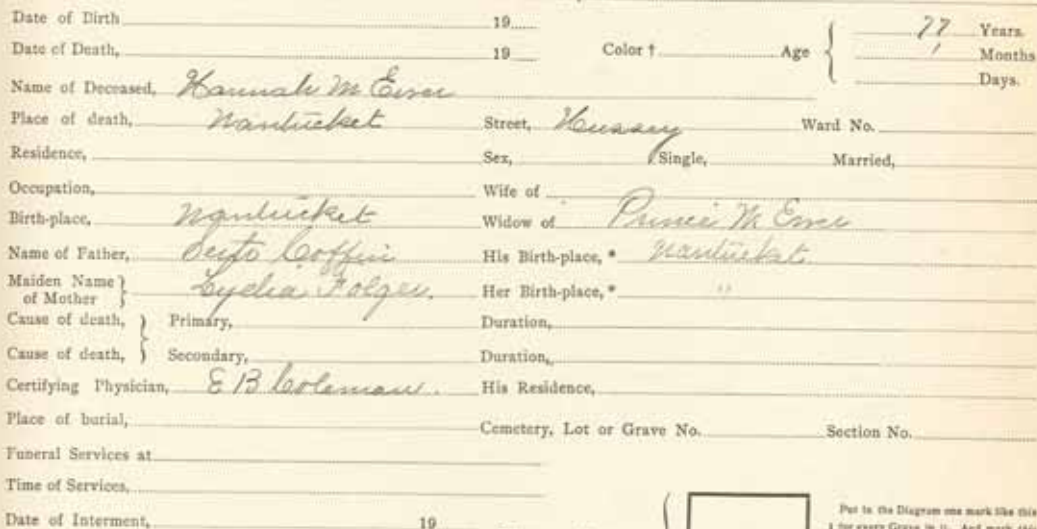 Date of Birth 19
77 Years.
Date of Death, 19 Color † Age 1 Months
Days.
Name of Deceased, Hannah M
Place of death, Nantucket Street, Hussey Ward No.
Residence, Sex, Single, Married,
Occupation, Wife of
Birth-place, Nantucket Widow of M
Name of Father, Coffin His Birth-place, * Nantucket
Maiden Name of Mother Lydia Folger. Her Birth-place, * "
Cause of death, Primary, Duration,
Cause of death, Secondary, Duration,
Certifying Physician, E B Coleman. His Residence,
Place of burial, Cemetery, Lot or Grave No. Section No.
Funeral Services at
Time of Services,
Put in the Diagram one mark like this
Date of Interment, 19